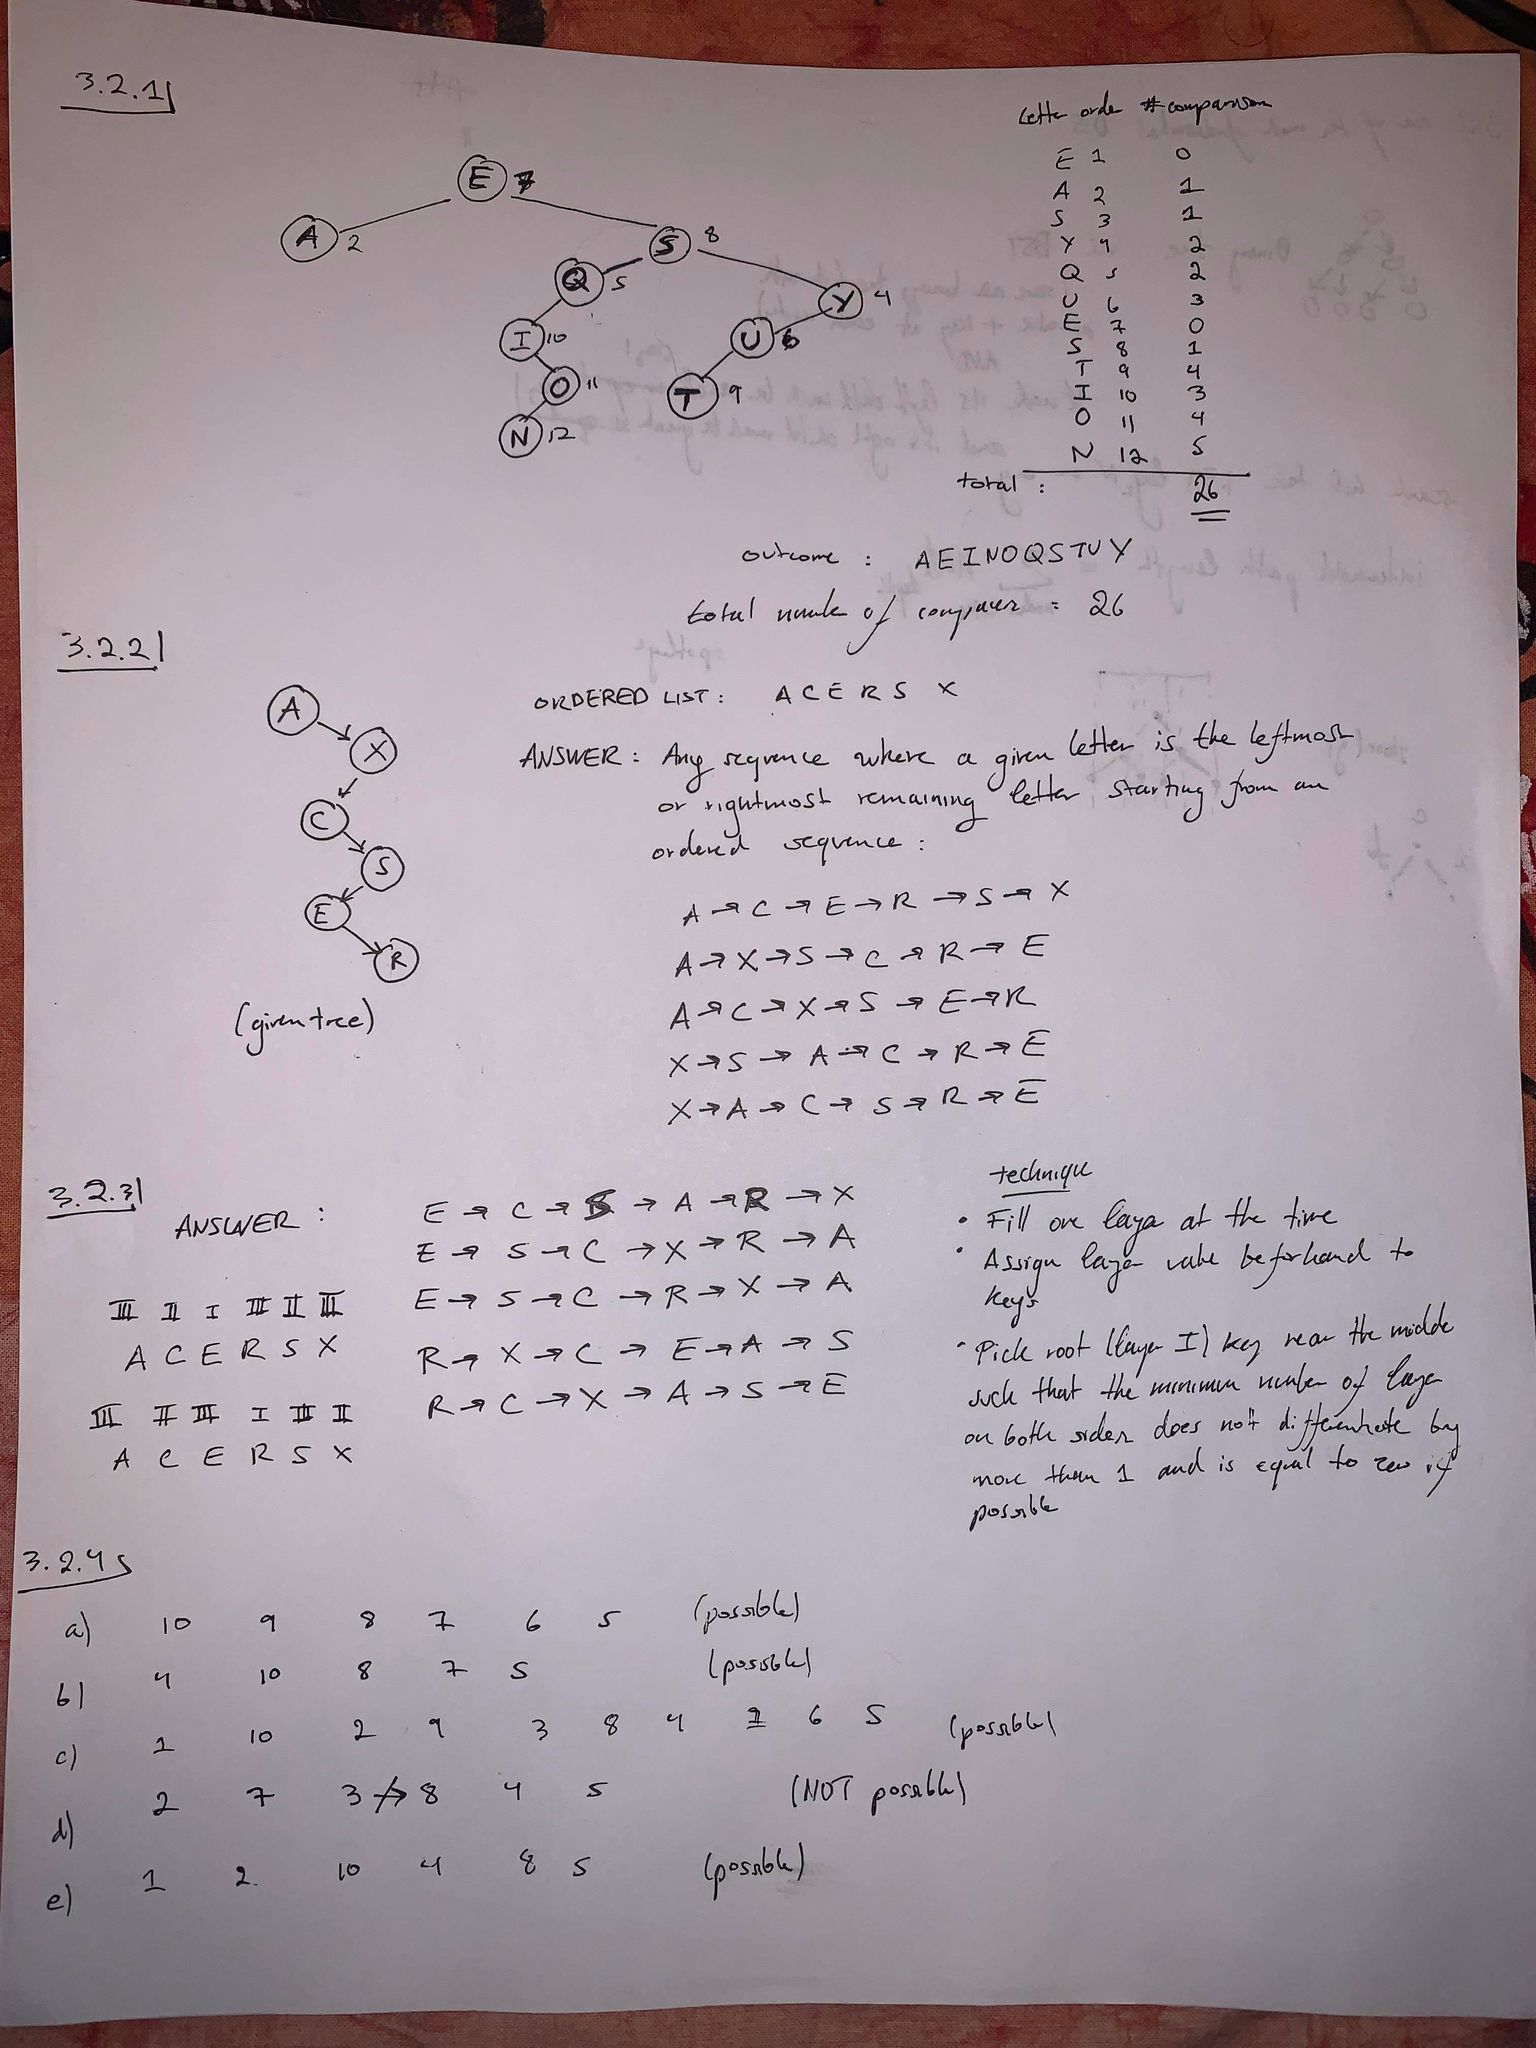 3.2.1
Letter order #comparison
E 1 0
A 2 1
S 3 1
Y 4 2
Q 5 2
U 6 3
E 7 0
S 8 1
T 9 4
I 10 3
O 11 4
N 12 5
total : 26
E 7
A 2
S 8
Q 5
Y 4
I 10
U 6
O 11
T 9
N 12
outcome : AEINOQSTUY
total numbe of compares = 26
3.2.2
A
X
C
S
E
R
(given tree)
ORDERED LIST: A C E R S X
ANSWER: Any sequence where a given letter is the leftmost
or rightmost remaining letter starting from an
ordered sequence :
A → C → E → R → S → X
A → X → S → C → R → E
A → C → X → S → E → R
X → S → A → C → R → E
X → A → C → S → R → E
3.2.3
ANSWER :
E → C → S → A → R → X
E → S → C → X → R → A
E → S → C → R → X → A
R → X → C → E → A → S
R → C → X → A → S → E
III II I III II III
A C E R S X
III II III I III II
A C E R S X
technique
• Fill one layer at the time
• Assign layer value beforhand to
keys
• Pick root (layer I) key near the middle
such that the minimum number of layer
on both sides does not differentiate by
more than 1 and is equal to zero if
possible
3.2.4
a) 10 9 8 7 6 5 (possible)
b) 4 10 8 7 5 (possible)
c) 1 10 2 9 3 8 4 7 6 5 (possible)
d) 2 7 3 ↛ 8 4 5 (NOT possible)
e) 1 2 10 4 8 5 (possible)